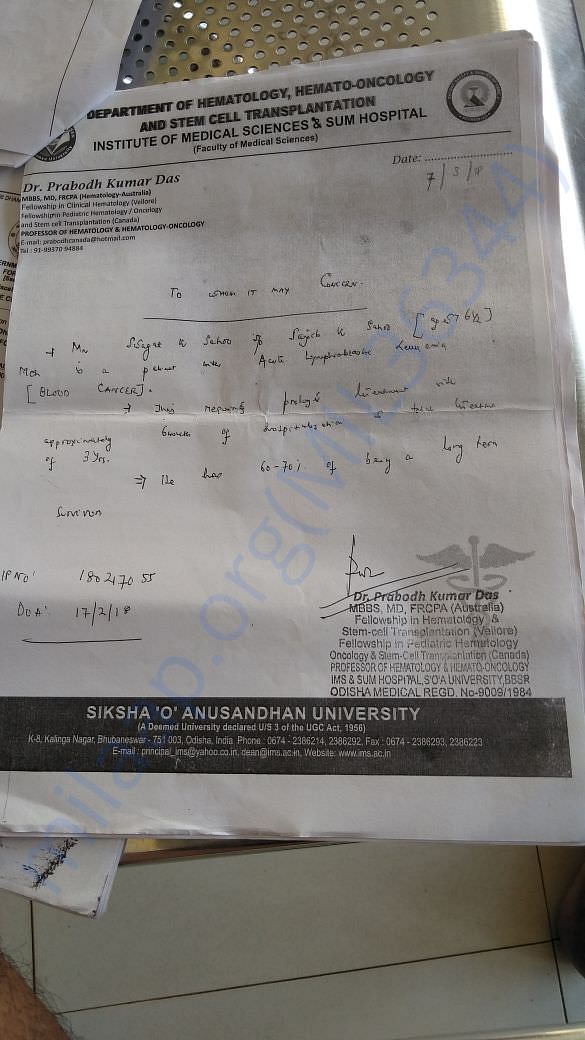 DEPARTMENT OF HEMATOLOGY, HEMATO-ONCOLOGY
AND STEM CELL TRANSPLANTATION
INSTITUTE OF MEDICAL SCIENCES & SUM HOSPITAL
(Faculty of Medical Sciences)
Date: ....................
7/3/18
Dr. Prabodh Kumar Das
MBBS, MD, FRCPA (Hematology-Australia)
Fellowship in Clinical Hematology (Vellore)
Fellowship in Pediatric Hematology / Oncology
and Stem cell Transplantation (Canada)
PROFESSOR OF HEMATOLOGY & HEMATO-ONCOLOGY
E-mail: prabodhcanada@hotmail.com
Tel : 91-99370 94884
TO WHOM IT MAY CONCERN
K Sahoo K Sahoo
is a patient with Acute Lymphoblastic Leukemia
[BLOOD CANCER].
→ This requires treatment with
approximately 6 months of hospitalisation
of 3 Yrs.
⇒ He has 60-70% of being a long term
Survivor
IP NO: 180217055
DOA: 17/2/18
Dr. Prabodh Kumar Das
MBBS, MD, FRCPA (Australia)
Fellowship in Hematology &
Stem-cell Transplantation (Vellore)
Fellowship in Pediatric Hematology
Oncology & Stem-Cell Transplantation (Canada)
PROFESSOR OF HEMATOLOGY & HEMATO-ONCOLOGY
IMS & SUM HOSPITAL, S'O'A UNIVERSITY, BBSR
ODISHA MEDICAL REGD. No-9009/1984
SIKSHA 'O' ANUSANDHAN UNIVERSITY
(A Deemed University declared U/S 3 of the UGC Act, 1956)
K-8, Kalinga Nagar, Bhubaneswar - 751 003, Odisha, India Phone : 0674 - 2386214, 2386292, Fax : 0674 - 2386293, 2386223
E-mail : principal_ims@yahoo.co.in, dean@ims.ac.in, Website: www.ims.ac.in
milaap.org(MIL263441)